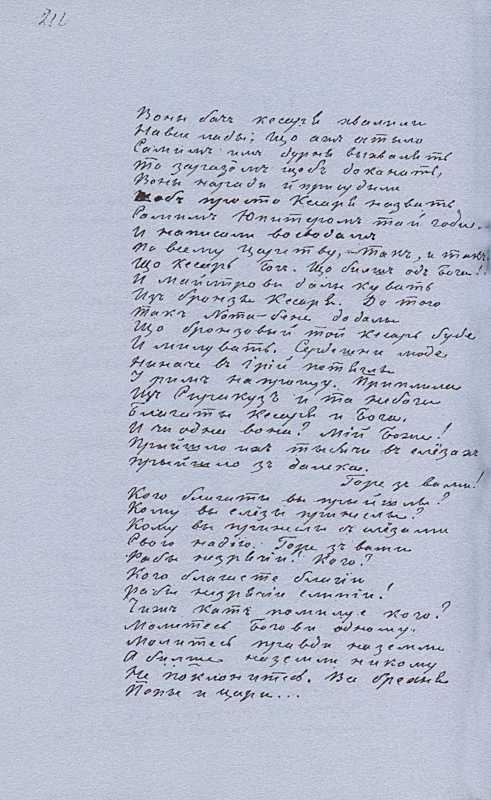 212
Воны бачъ кесаря хвалили
Самимъ имъ дурня выхвалять
То заразомъ щобъ доконать,
Воны наради й присудили
Щобъ просто Кесаря назвать
Самимъ Юпитеромъ тай годи.
И написали воеводамъ
По всему царству, и такъ, и такъ
Що Кесарь Богъ. Що бильшъ одъ Бога!
И майстрови дали кувать
Изъ бронзы Кесаря. До того
Такъ Nota-бене додалы
Що бронзовый той кесарь буде
И миловать. Сердешни люде
Неначе въ Ирій потяглы
У римъ на прощу. Приплила
Изъ Сиракузъ и та небога
Благаты Кесаря и Бога.
И чи одна вона? Мій Боже!
Прыйшло ихъ тысячи въ слёзахъ
Прыйшло зъ далека.
Горе зъ вами!
Кого благаты вы прыйшлы?
Кому вы слёзы принеслы?
Кому вы принеслы съ слёзами
Свою надію. Горе зъ вами
Рабы незрячіи! Кого?
Кого благаете благіи
Рабы незрячіи слипіи!
Чижъ катъ помилуе кого?
Молитесь Богови одному.
Молитесь правди на земли
А бильше на земли никому
Не поклонитесь. Все брехня
Попы и цари...